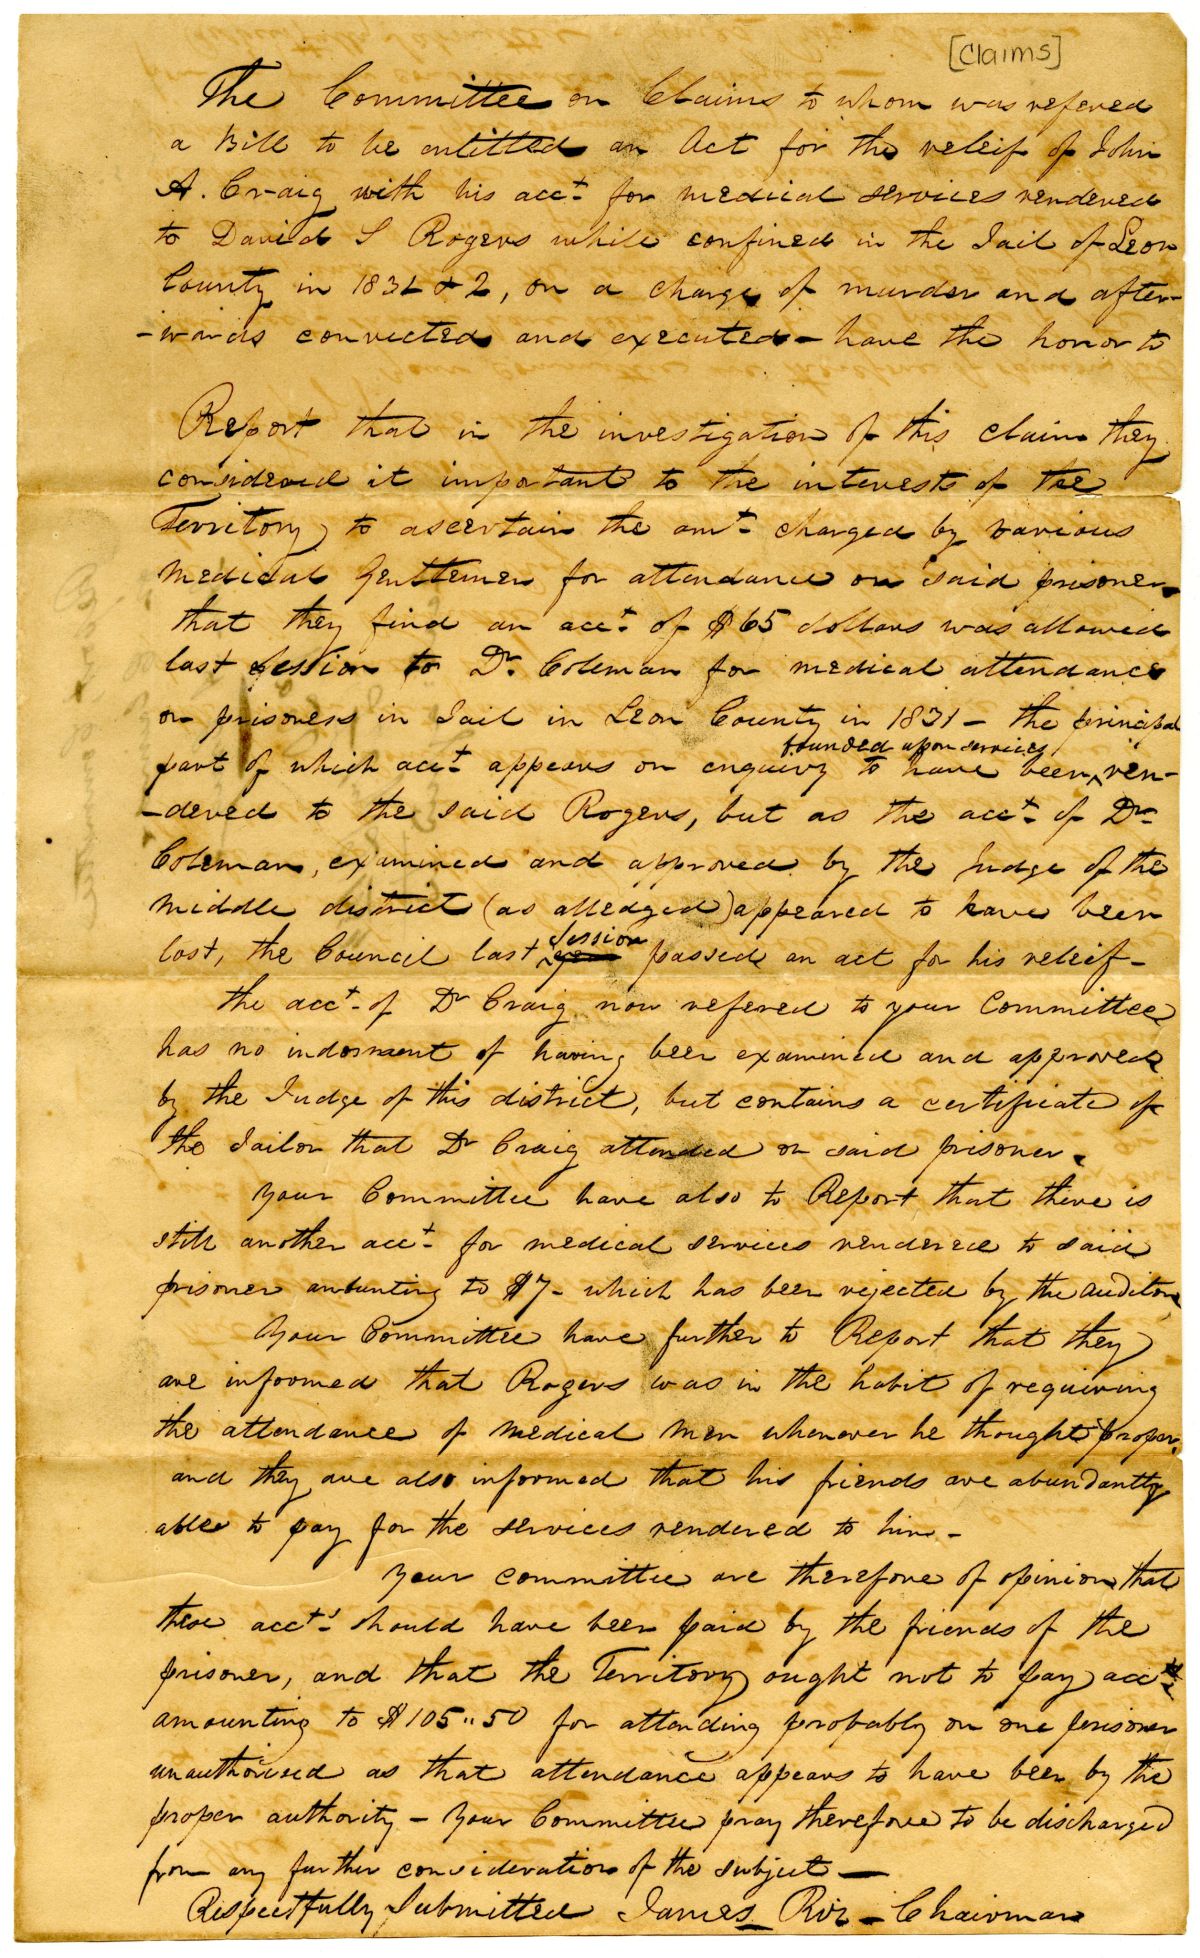 [Claims]
The Committee on Claims to whom was refered
a Bill to be entitled an Act for the releif of John
A. Craig with his acct. for medical services rendered
to David S Rogers while confined in the Jail of Leon
County in 1831 & 2, on a charge of murder and after-
-wards convicted and executed - have the honor to
Report that in the investigation of this claim they
considered it important to the interests of the
Territory to ascertain the amt. charged by various
Medical Gentlemen for attendance on said prisoner.
that they find an acct. of $65 dollars was allowed
last session to Dr. Coleman for medical attendance
on prisoners in Jail in Leon County in 1831 - the principal
founded upon services
part of which acct. appears on enquiry to have been ^ ren-
-dered to the said Rogers, but as the acct. of Dr.
Coleman, examined and approved by the Judge of the
Middle district (as alledged) appeared to have been
Session
lost, the Council last ^ passed an act for his releif -
the acct. of Dr Craig now refered to your Committee
has no indorsment of having been examined and approved
by the Judge of this district, but contains a certificate of
the Jailor that Dr Craig attended on said prisoner.
Your Committee have also to Report that there is
still another acct. for medical services rendered to said
prisoner amounting to $7 - which has been rejected by the Auditor
Your Committee have further to Report that they
are informed that Rogers was in the habit of requiring
the attendance of Medical Men whenever he thought proper,
and they are also informed that his friends are abundantly
able to pay for the services rendered to him -
Your committee are therefore of opinion that
these accts. should have been paid by the friends of the
prisoner, and that the Territory ought not to pay accts.
amounting to $105"50 for attending probably on one prisoner
unauthorised as that attendance appears to have been by the
proper authority - Your Committee pray therefore to be discharged
from any further consideration of the subject -
Respectfully Submitted James Chairman